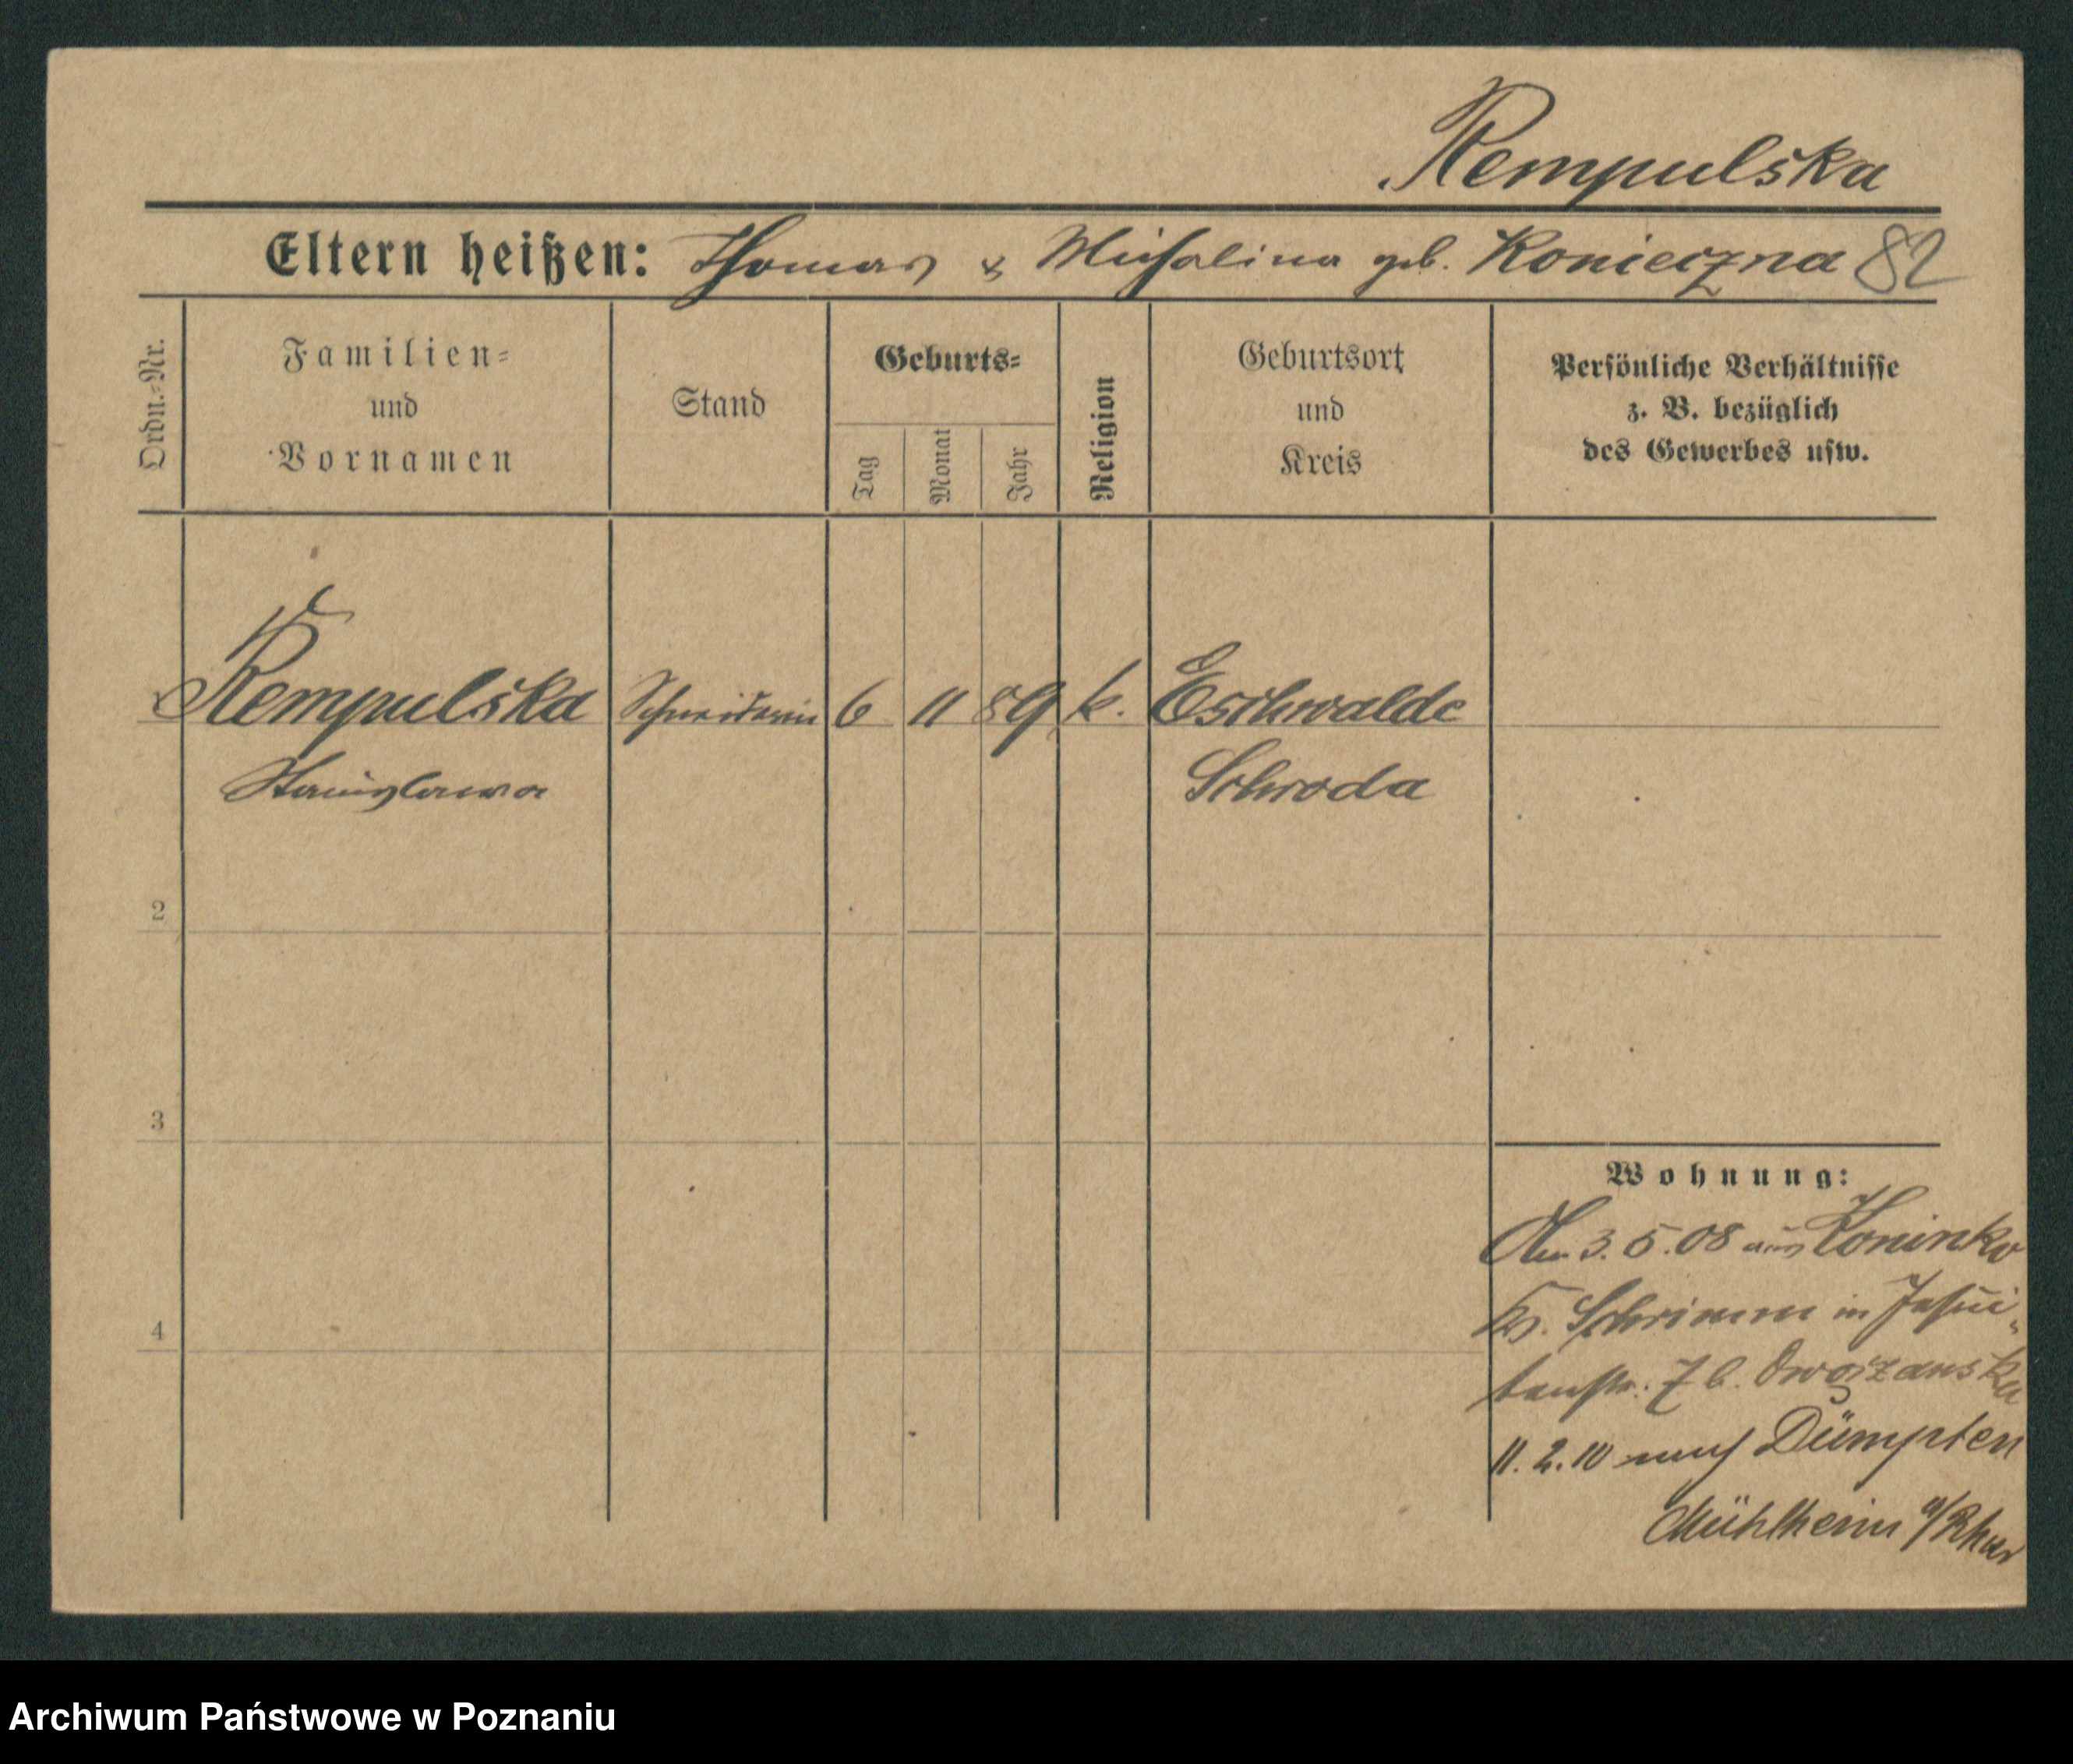 Rempulska
Eltern heißen: Thomas & Michalina geb. Konieczna 82
Ordn.-Nr.
Familien-
und
Vornamen
Stand
Geburts-
Tag
Monat
Jahr
Religion
Geburtsort
und
Kreis
Persönliche Verhältnisse
z. B. bezüglich
des Gewerbes usw.
Rempulska Schneiderin 6 11 89 k. Eschwalde
Stanislawa Schroda
2
3
4
Wohnung:
3.5.08 aus Koninko
Kr. Schrimm in Jesui-
tenstr. 7 b. Dwojzanska
11.2.10 nach Dümpten
Mühlheim a/Rhur
Archiwum Państwowe w Poznaniu